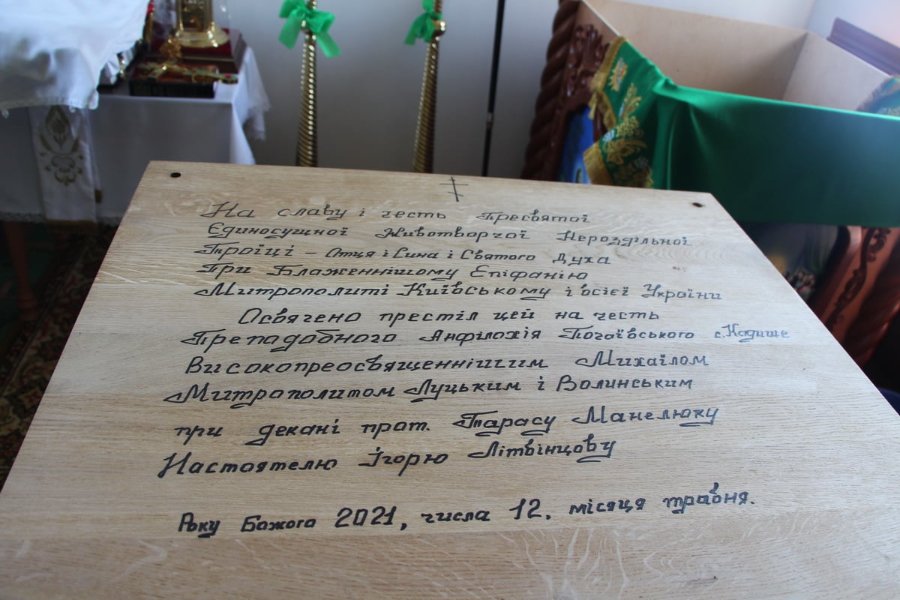 На славу і честь Пресвятої
Єдиносущної Животворчої Нероздільної
Троїці – Отця і Сина і Святого Духа
При Блаженнішому Епіфанію
Митрополиті Київському і всієї України
Освячено престіл цей на честь
Преподобного Амфілохія Почаївського с. Кадище
Високопреосвященнішим Михаїлом
Митрополитом Луцьким і Волинським
при декані прот. Тарасу Манелюку
Настоятелю Ігорю Літвінцову
Року Божого 2021, числа 12, місяця травня.